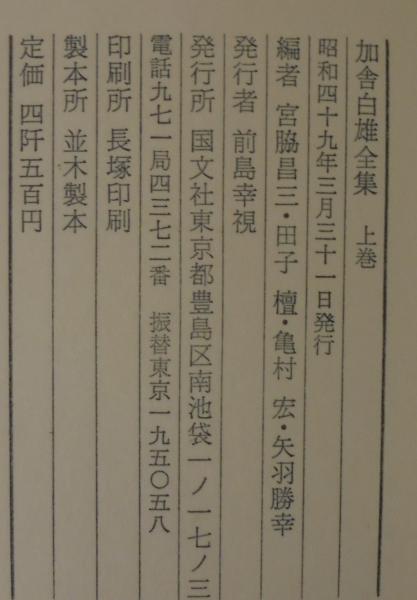 加舎白雄全集　上巻
昭和四十九年三月三十一日発行
編者　宮脇昌三・田子　檀・亀村　宏・矢羽勝幸
発行者　前島幸視
発行所　国文社東京都豊島区南池袋一ノ一七ノ三
電話九七一局四三七二番　振替東京一九五〇五八
印刷所　長塚印刷
製本所　並木製本
定価　四阡五百円